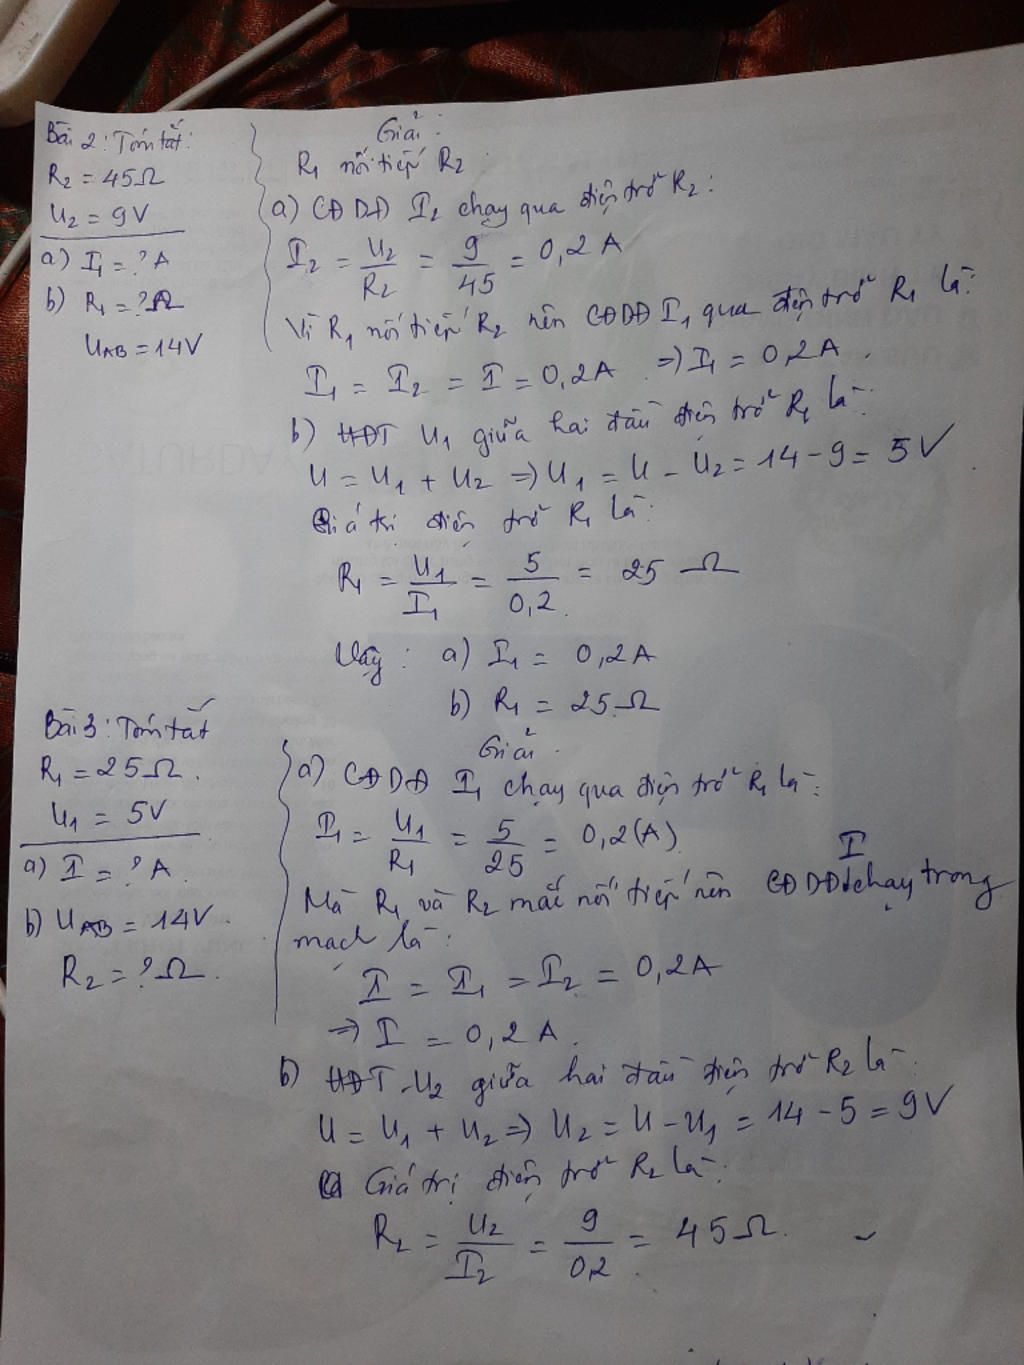 Bài 2: Tóm tắt:
R2 = 45Ω
U2 = 9V
a) I1 = ? A
b) R1 = ? Ω
UAB = 14V
Giải:
R1 nối tiếp R2
a) CĐDĐ I2 chạy qua điện trở R2:
I2 = U2/R2 = 9/45 = 0,2 A
Vì R1 nối tiếp R2 nên CĐDĐ I1 qua điện trở R1 là:
I1 = I2 = I = 0,2A => I1 = 0,2A.
b) HĐT U1 giữa hai đầu điện trở R1 là:
U = U1 + U2 => U1 = U - U2 = 14 - 9 = 5V
Giá trị điện trở R1 là:
R1 = U1/I1 = 5/0,2 = 25 Ω
Vậy: a) I1 = 0,2A
b) R1 = 25Ω
Bài 3: Tóm tắt
R1 = 25Ω.
U1 = 5V
a) I = ? A.
b) UAB = 14V.
R2 = ? Ω.
Giải.
a) CĐDĐ I1 chạy qua điện trở R1 là:
I1 = U1/R1 = 5/25 = 0,2(A)
Mà R1 và R2 mắc nối tiếp nên CĐDĐ I chạy trong
mạch là:
I = I1 = I2 = 0,2A
=> I = 0,2A.
b) HĐT U2 giữa hai đầu điện trở R2 là:
U = U1 + U2 => U2 = U - U1 = 14 - 5 = 9V
Giá trị điện trở R2 là:
R2 = U2/I2 = 9/0,2 = 45Ω.